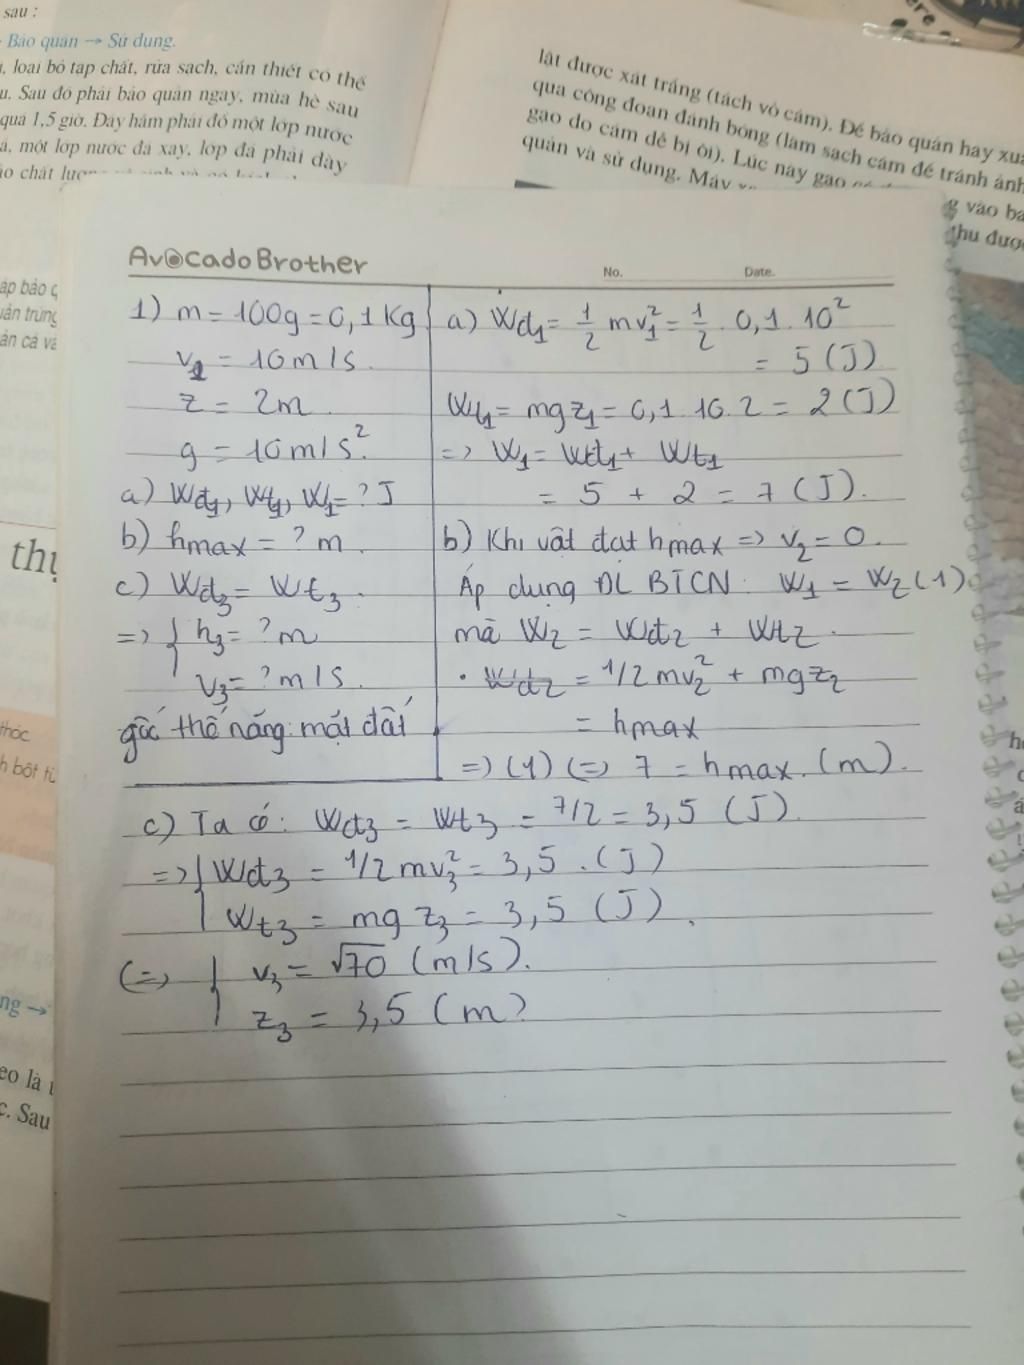 sau :
Bảo quản → Sử dụng.
, loại bỏ tạp chất, rửa sạch, cần thiết có thể
u. Sau đó phải bảo quản ngay, mùa hè sau
quá 1,5 giờ. Đáy hầm phải đổ một lớp nước
á, một lớp nước đá xay, lớp đá phải dày
lật được xát trắng (tách vỏ cám). Để bảo quản hay xuấ
qua công đoạn đánh bóng (làm sạch cám để tránh ảnh
gạo do cám dễ bị ôi). Lúc này gạo
quản và sử dụng. Máy
g vào ba
thu được
áp bảo q
uân trùng
ản cá và
thụ
thóc
h bột từ
ng →
eo là
c. Sau
AvocadoBrother
No. Date.
1) m = 100g = 0,1 Kg
v1 = 10 m/s
z = 2m
g = 10 m/s².
a) Wđ1, Wt1, W1 = ? J
b) hmax = ? m.
c) Wđ3 = Wt3.
=> { h3 = ? m
v3 = ? m/s.
gốc thế năng: mặt đất
a) Wđ1 = 1/2 mv1² = 1/2 . 0,1 . 10²
= 5 (J)
Wt1 = mgz1 = 0,1 . 10 . 2 = 2 (J)
=> W1 = Wđ1 + Wt1
= 5 + 2 = 7 (J).
b) Khi vật đạt hmax => v2 = 0.
Áp dụng ĐL BTCN: W1 = W2 (1)
mà W2 = Wđ2 + Wt2
· Wđ2 = 1/2 mv2² + mgz2
= hmax
=> (1) (=> 7 = hmax. (m).
c) Ta có: Wđ3 = Wt3 = 7/2 = 3,5 (J).
=> { Wđ3 = 1/2 mv3² = 3,5 . (J)
Wt3 = mg z3 = 3,5 (J).
(=> { v3 = √70 (m/s).
z3 = 3,5 (m)